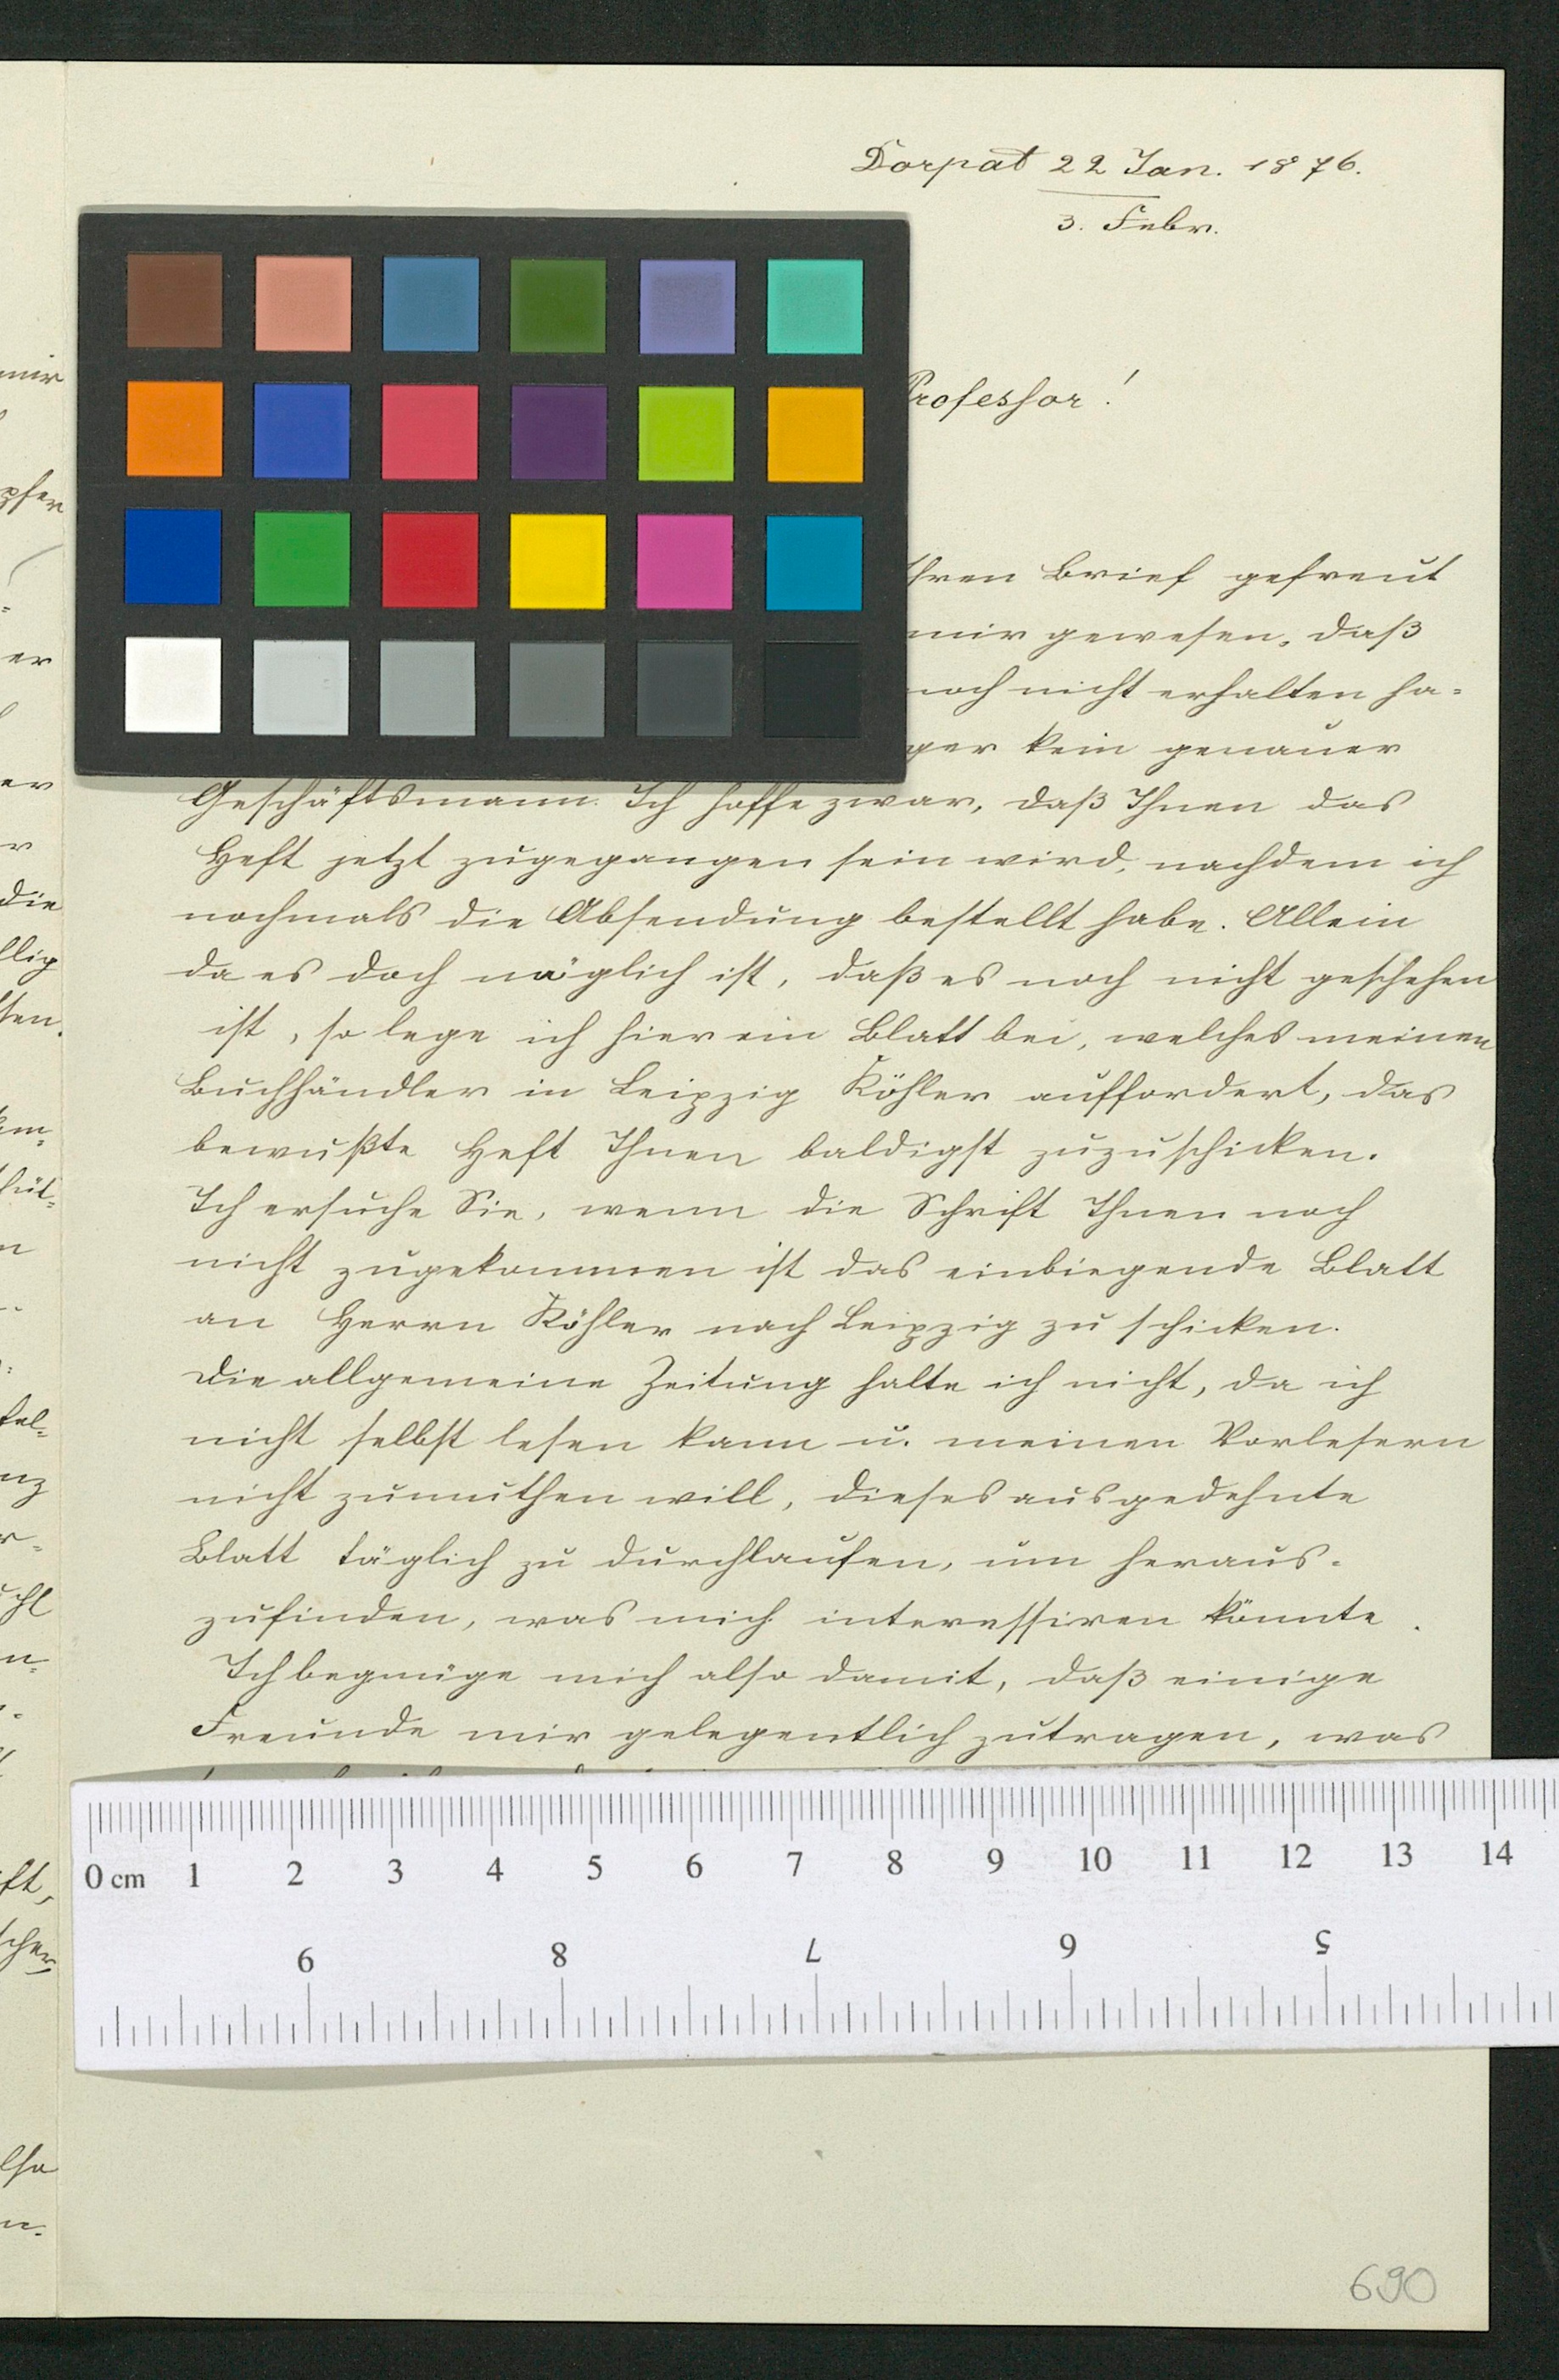 Dorpat 22 Jan. 1876.
3. Febr.
Professor!
Ihren Brief gefreut
mir gewesen, daß
noch nicht erhalten ha=
ger kein genauer
Geschäftsmann. Ich hoffe zwar, daß Ihnen das
Heft jetzt zugegangen sein wird, nachdem ich
nochmals die Absendung bestellt habe. Allein
da es doch möglich ist, daß es noch nicht geschehen
ist, so lege ich hier ein Blatt bei, welches meinen
Buchhändler in Leipzig Köhler auffordert, das
bewußte Heft Ihnen baldigst zuzuschicken.
Ich ersuche Sie, wenn die Schrift Ihnen noch
nicht zugekommen ist das einbiegende Blatt
an Herrn Köhler nach Leipzig zu schicken.
Die allgemeine Zeitung halte ich nicht, da ich
nicht selbst lesen kann u. meinen Vorlesern
nicht zumuthen will, dieses ausgedehnte
Blatt täglich zu durchlaufen, um heraus=
zufinden, was mich interessiren könnte.
Ich begnüge mich also damit, daß einige
Freunde mir gelegentlich zutragen, was
0 cm 1 2 3 4 5 6 7 8 9 10 11 12 13 14
9 8 7 6 5
690
mir
pfer
er
er
r
die
llig
ten.
nz
ft,
scher
lso